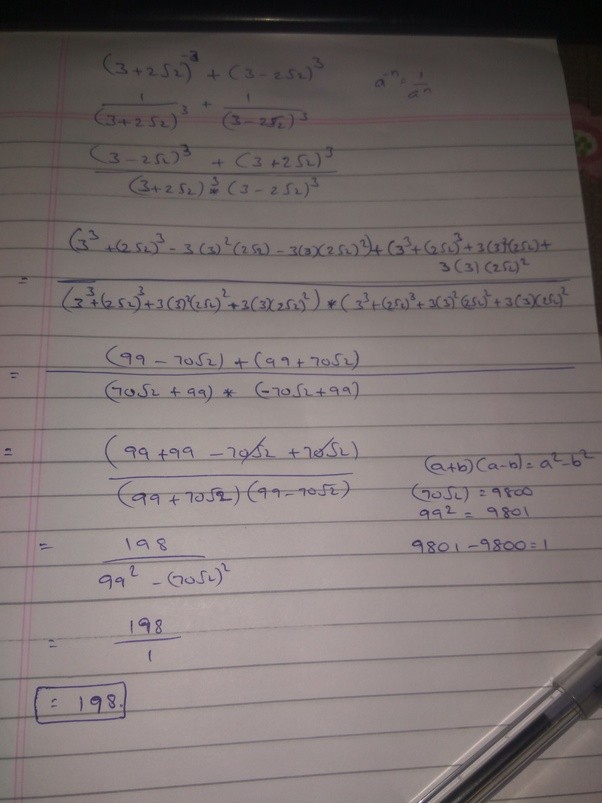 (3+2√2)^-3 + (3-2√2)^3
a^-n = 1/a^n
1/(3+2√2)^3 + 1/(3-2√2)^3
((3-2√2)^3 + (3+2√2)^3)/((3+2√2)^3 * (3-2√2)^3)
= ((3^3+(2√2)^3-3(3)^2(2√2)-3(3)(2√2)^2)+(3^3+(2√2)^3+3(3)^2(2√2)+
3(3)(2√2)^2
(3^3+(2√2)^3+3(3)^2(2√2)^2+3(3)(2√2)^2)*(3^3+(2√2)^3+3(3)^2(2√2)^2+3(3)(2√2)^2
= ((99-70√2)+(99+70√2))/((70√2+99)*(-70√2+99))
= (99+99-70√2+70√2)/((99+70√2)(99-70√2))
(a+b)(a-b)=a^2-b^2
(70√2)=9800
99^2=9801
= 198/(99^2-(70√2)^2)
9801-9800=1
= 198/1
= 198.